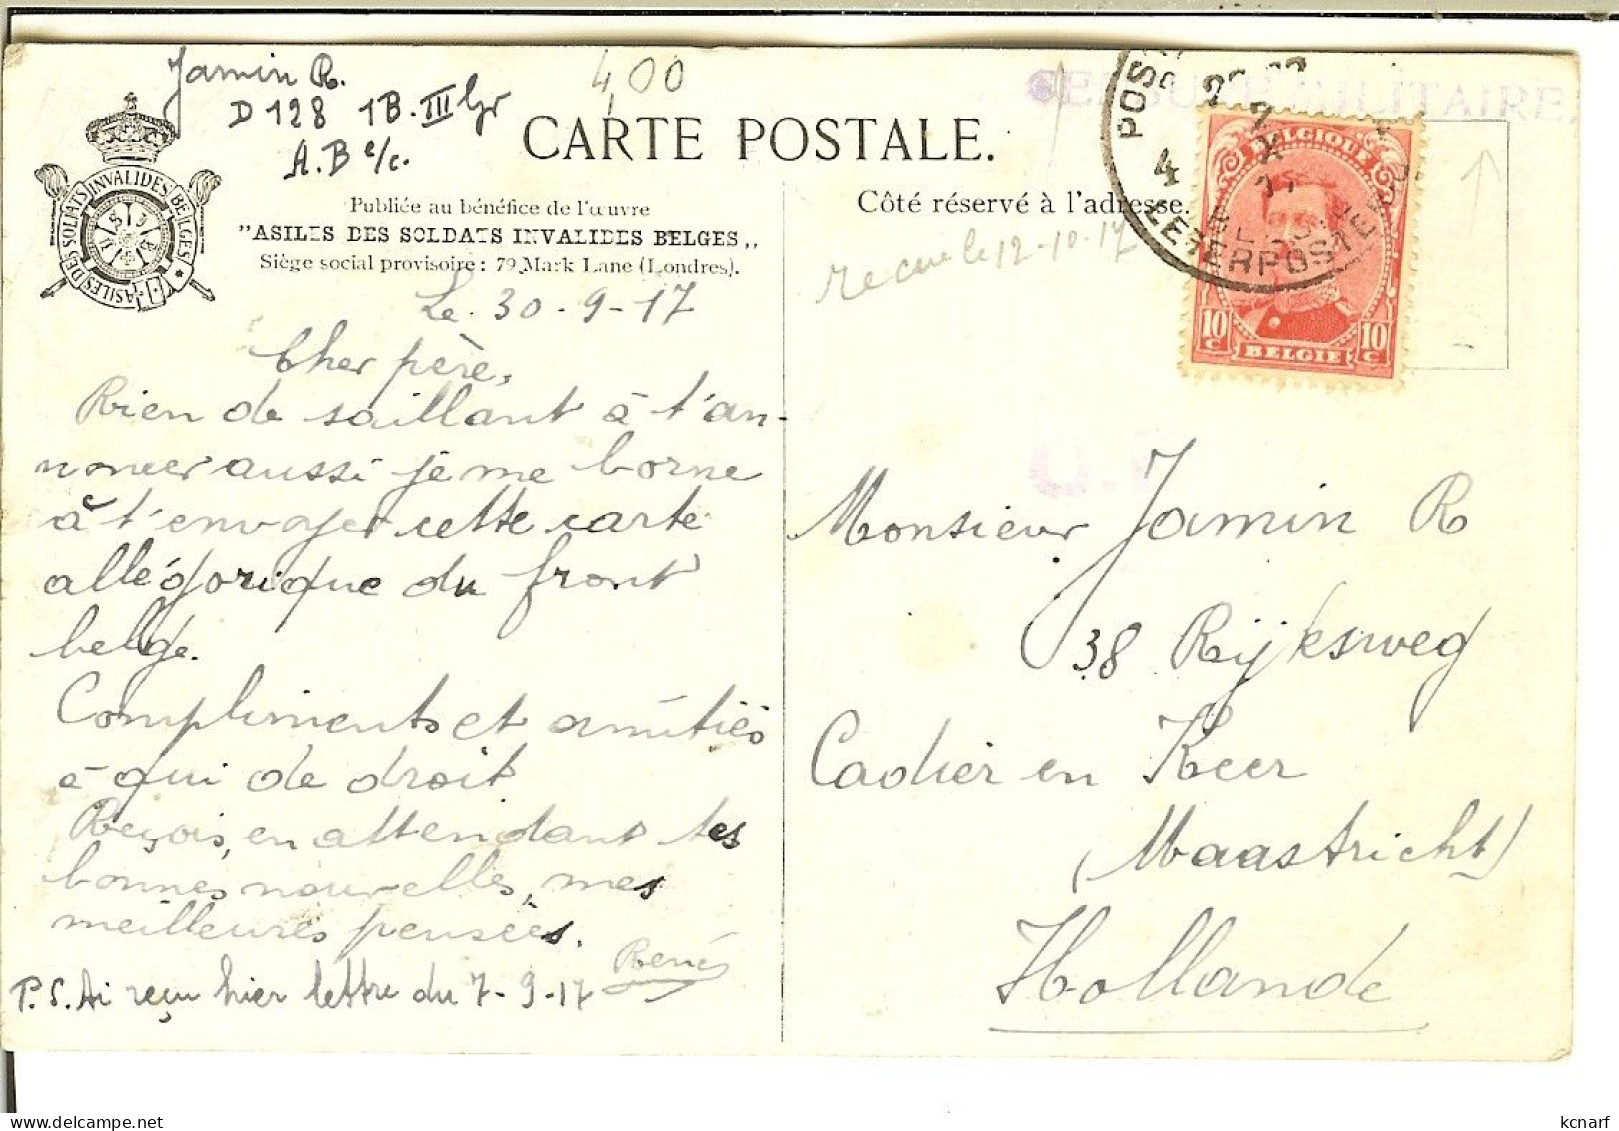 Jamin R.
D 128 1B. III Gr
A.B e/c.
4,00
CENSURE MILITAIRE.
CARTE POSTALE.
ASILES DES SOLDATS INVALIDES BELGES
Publiée au bénéfice de l'œuvre
"ASILES DES SOLDATS INVALIDES BELGES„
Siège social provisoire : 79, Mark Lane (Londres).
Côté réservé à l'adresse.
BELGIQUE
10 C
BELGIE
10 C
POS
4
LEGERPOSTERIJ
recue le 12-10-17
Le 30-9-17
Cher père,
Rien de saillant à t'an-
noncer aussi je me borne
à t'envoyer cette carte
allégorique du front
belge.
Compliments et amitiés
à qui de droit
Reçois, en attendant tes
bonnes nouvelles, mes
meilleures pensées.
René
P.S. Ai reçu hier lettre du 7-9-17
Monsieur Jamin R
38 Rijksweg
Cadier en Keer
(Maastricht)
Hollande
kcnarf